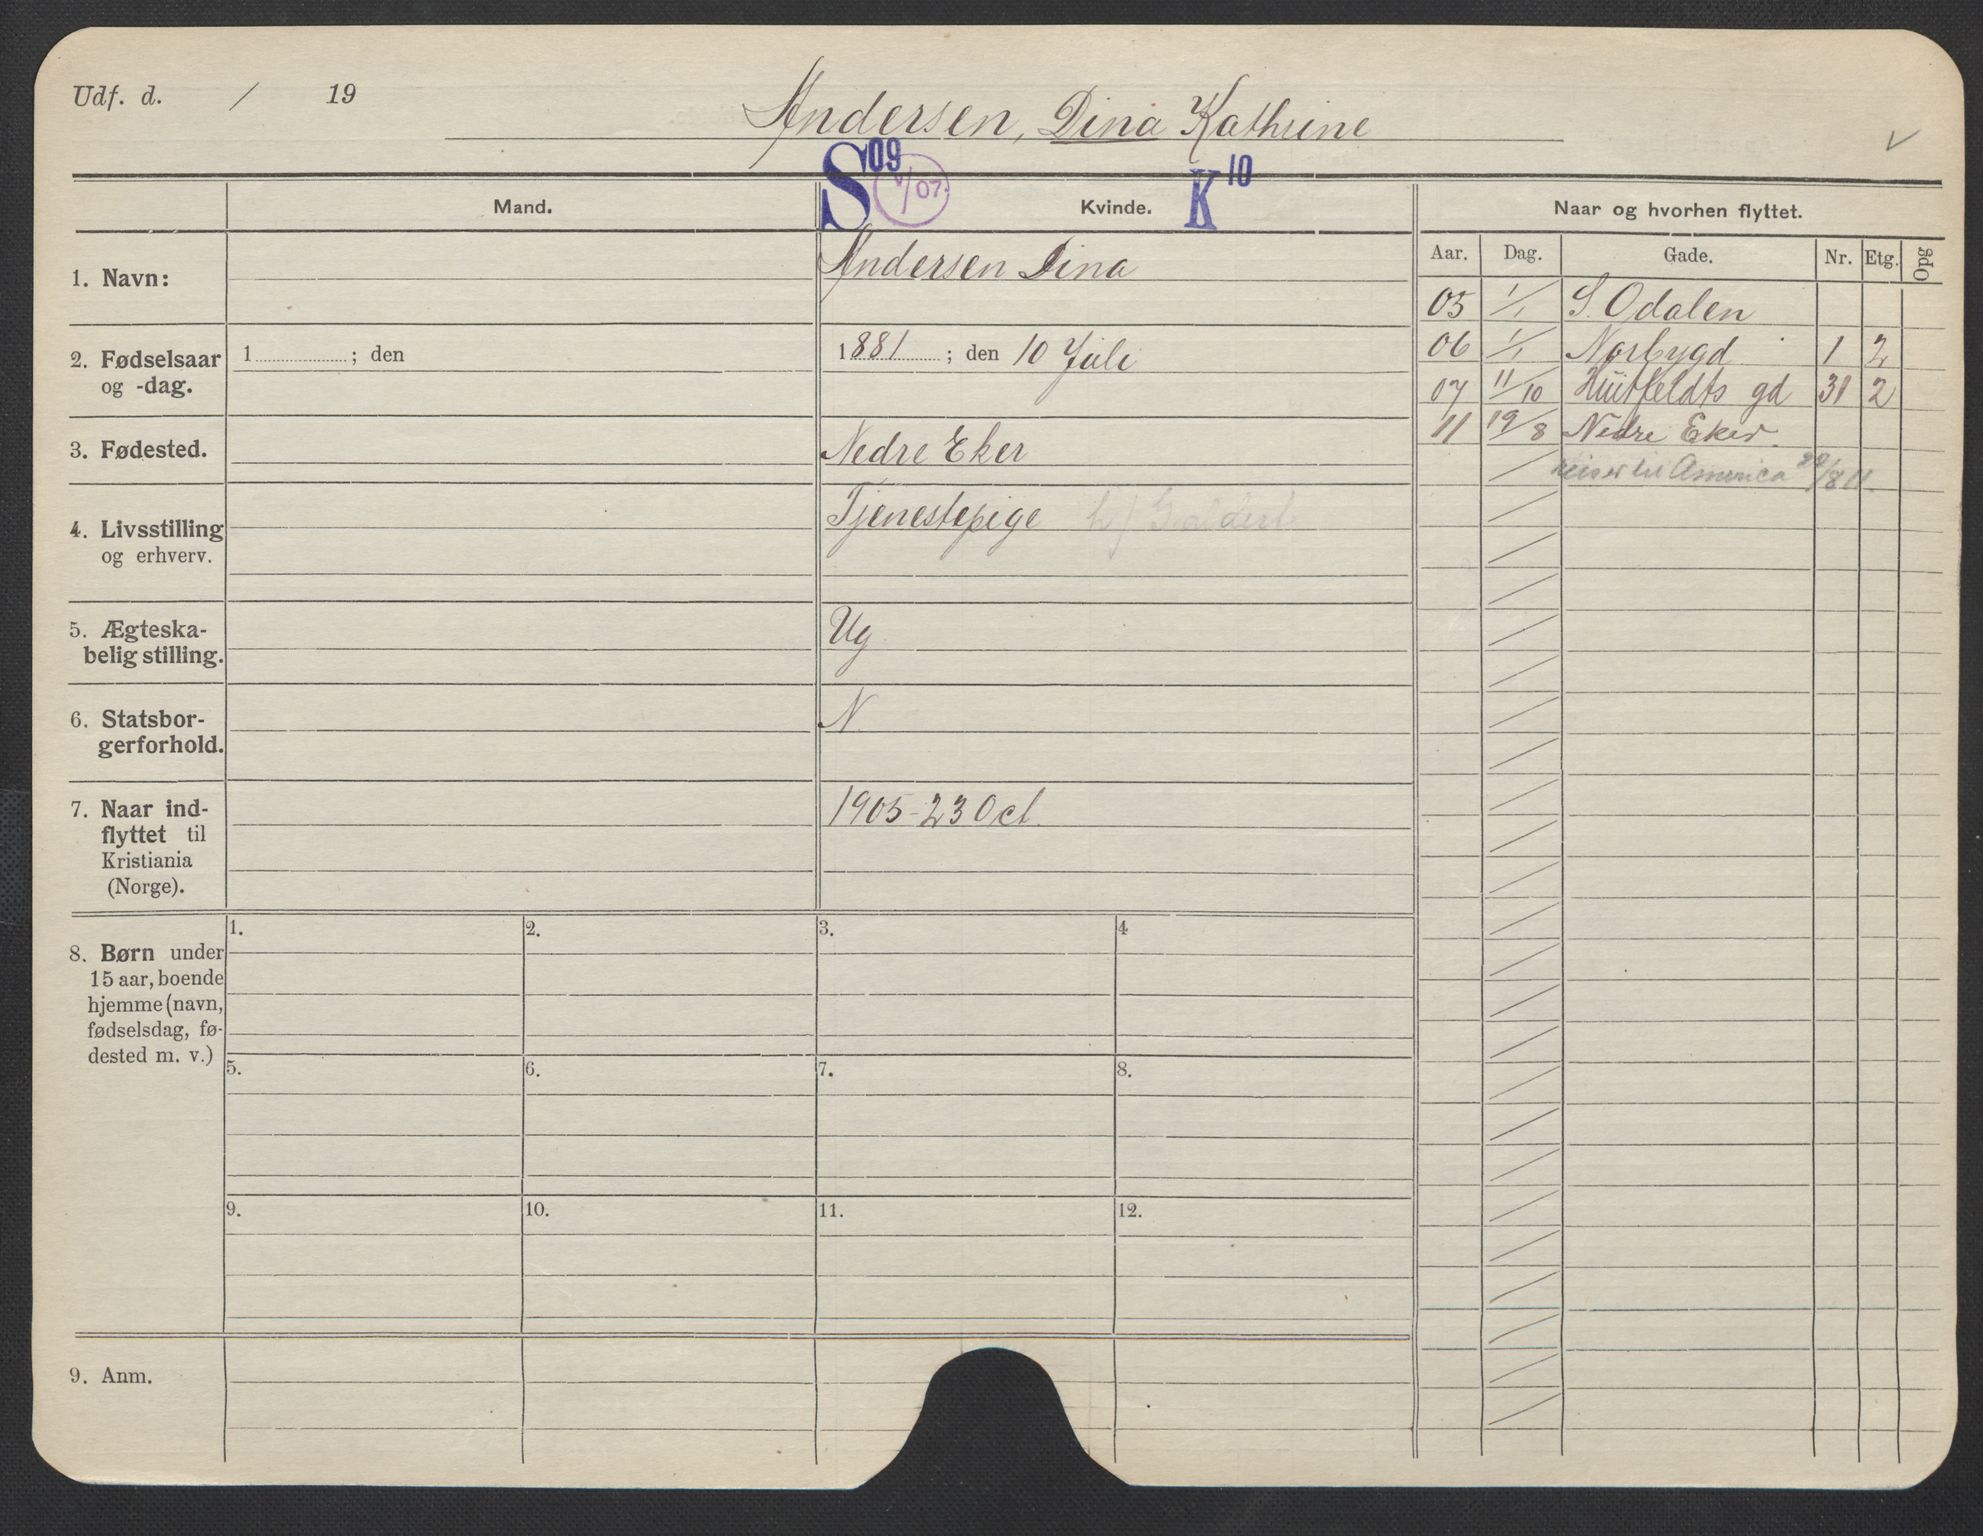 Udf. d. / 19
Andersen, Dina Kathrine
S 09 1/07. K 10
Mand. Kvinde. Naar og hvorhen flyttet.
Aar. Dag. Gade. Nr. Etg. Opg
1. Navn: Andersen Dina
05 1/1 S. Odalen
06 1/1 Norbygd 1 2
07 11/10 Huitfeldts gd 31 2
11 19/8 Nedre Eker.
reiser til America 29/8 11.
2. Fødselsaar 1 ; den 1881 ; den 10 Juli
og -dag.
3. Fødested. Nedre Eker
4. Livsstilling Tjenestepige h/
og erhverv.
5. Ægteska-
belig stilling. Ug
6. Statsbor-
gerforhold. N.
7. Naar ind-
flyttet til
Kristiania
(Norge).
1905-23 Oct.
8. Børn under
15 aar, boende
hjemme (navn,
fødselsdag, fø-
dested m. v.)
1. 2. 3. 4
5. 6. 7. 8.
9. 10. 11. 12.
9. Anm.